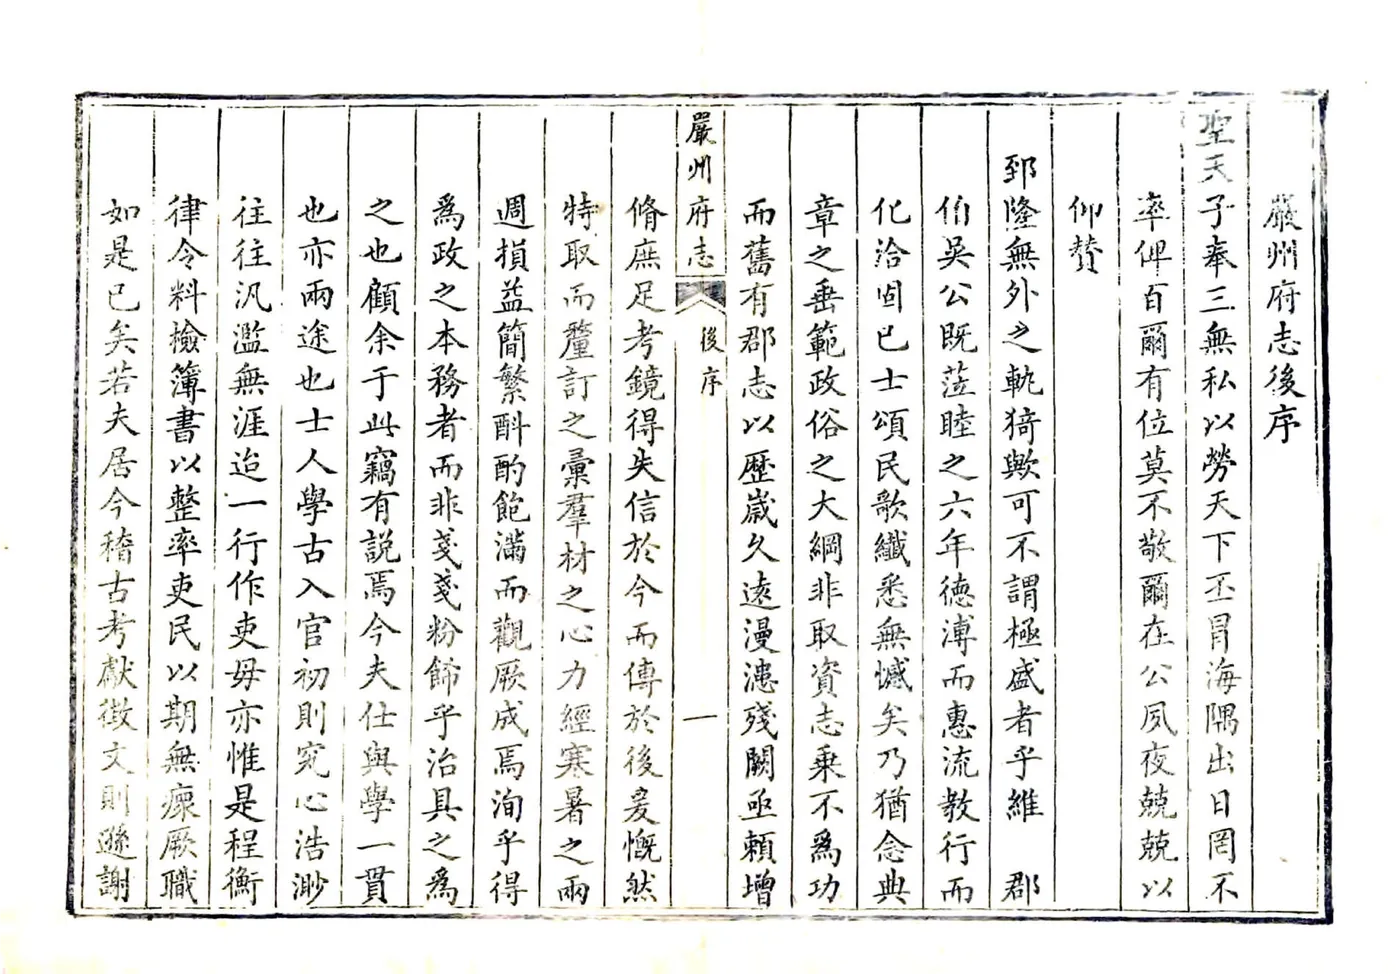 嚴州府志後序
聖天子奉三無私以勞天下丕冒海隅出日罔不
率俾百爾有位莫不敬爾在公夙夜兢兢以
仰贊
郅隆無外之軌猗歟可不謂極盛者乎維 郡
伯吳公旣蒞睦之六年德溥而惠流敎行而
化洽固已士頌民歌纖悉無憾矣乃猶念典
章之垂範政俗之大綱非取資志乘不爲功
而舊有郡志以歷歲久遠漫漶殘闕亟賴增
嚴州府志
後序
一
脩庶足考鏡得失信於今而傳於後爰慨然
特取而釐訂之彙羣材之心力經寒暑之兩
週損益簡繁斟酌飽滿而觀厥成焉洵乎得
爲政之本務者而非戔戔粉飾乎治具之爲
之也顧余于此竊有說焉今夫仕與學一貫
也亦兩途也士人學古入官初則究心浩渺
往往汎濫無涯迨一行作吏毋亦惟是程衡
律令料檢簿書以整率吏民以期無瘝厥職
如是已矣若夫居今稽古考獻徵文則遜謝